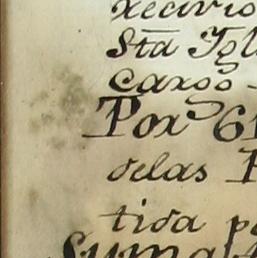 recivio
Sta Igl
cargo
Por 61
delas P
tida p
Suma